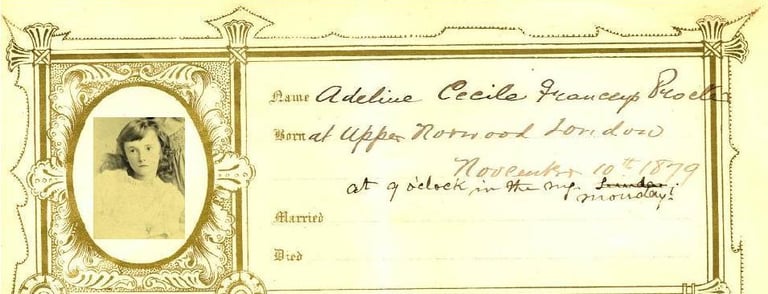 Name Adeline Cecile Franceys Procter
Born at Upper Norwood London
November 10th 1879
at 9 o'clock in the mg. Sunday
monday.
Married
Died